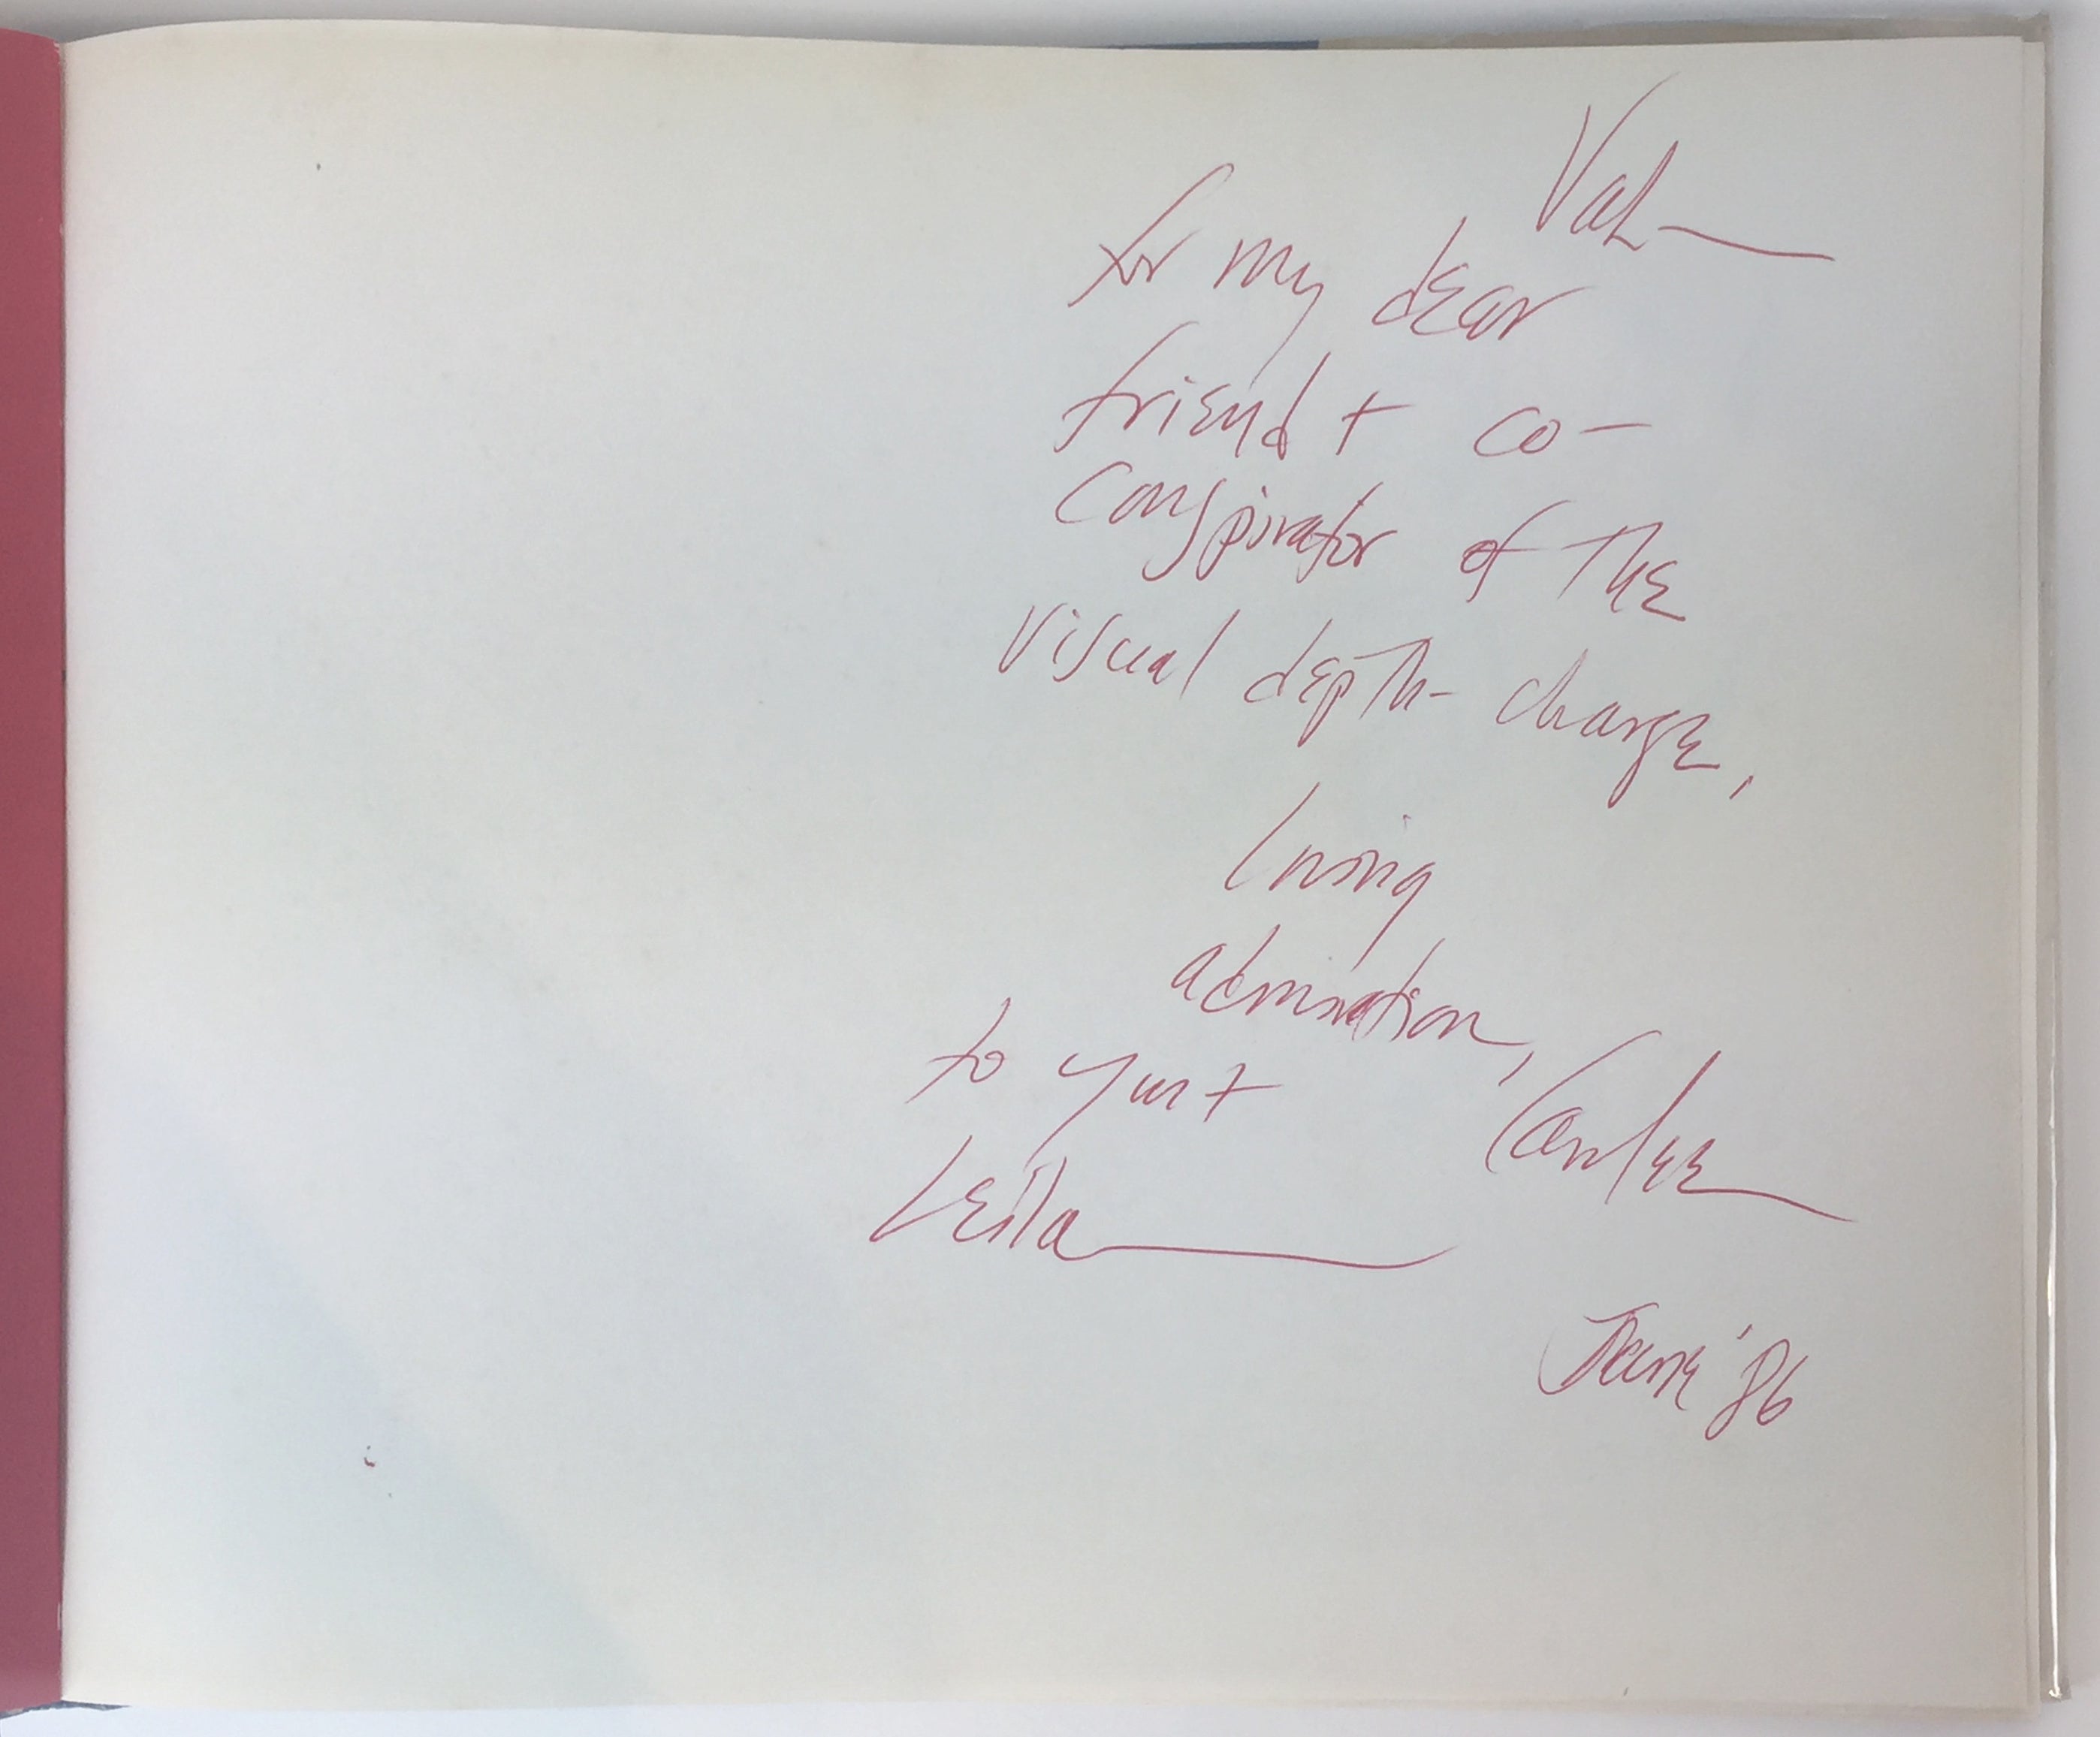 Val—
for my dear
friend + co-
conspirator of the
visual depth-charge,
loving
admiration,
to you +
Leila
Carolee
June '86